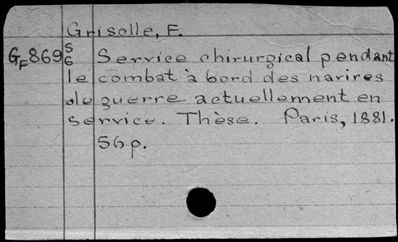 Grisolle, F.
GF869 5/6 Service chirurgical pendant
le combat à bord des narires
de guerre actuellement en
service. Thèse. Paris, 1881.
56p.